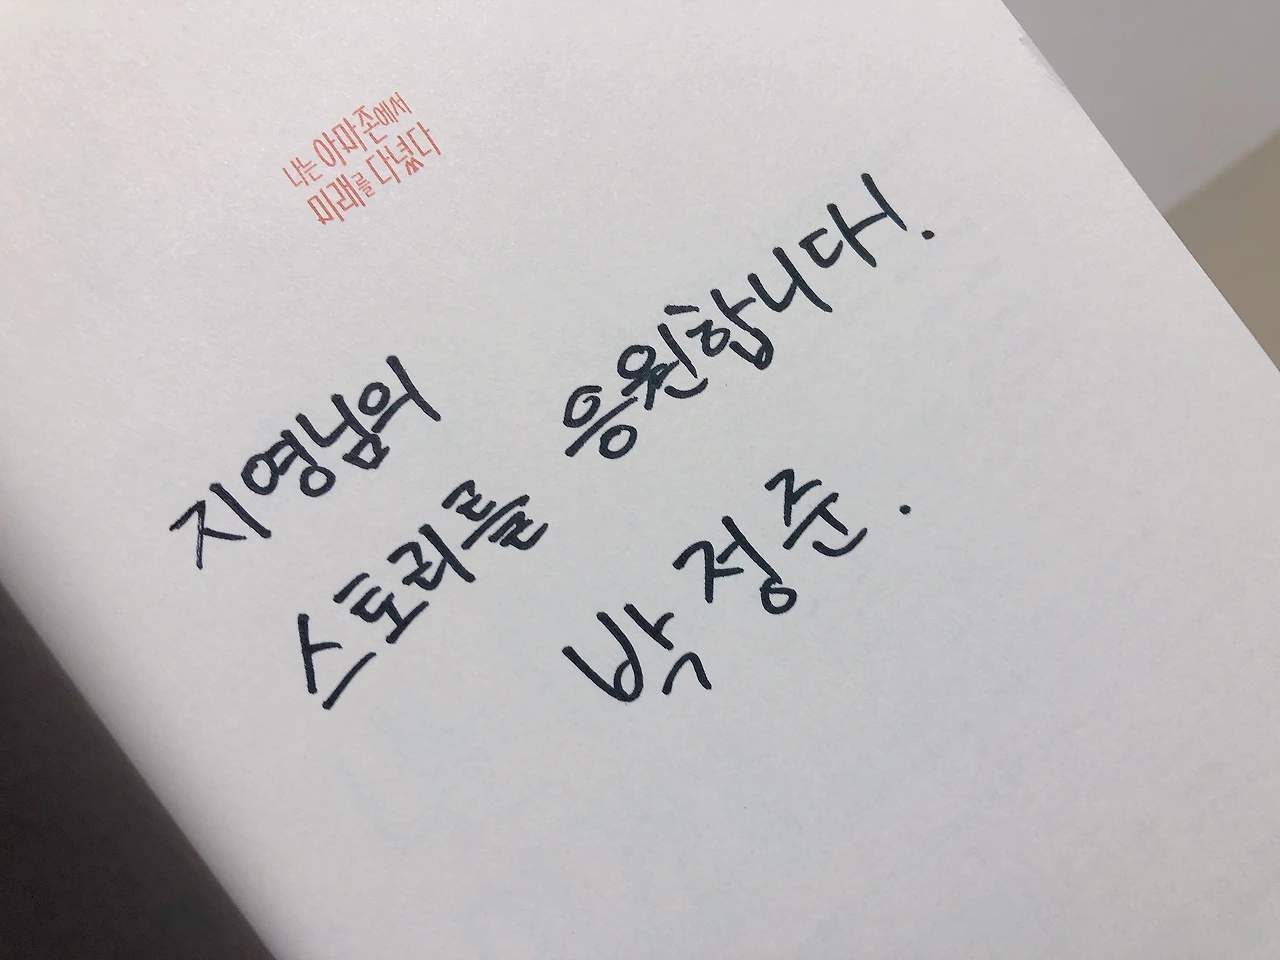 나는 아마존에서
미래를 다녔다
지영님의
스토리를 응원합니다!
박정준.